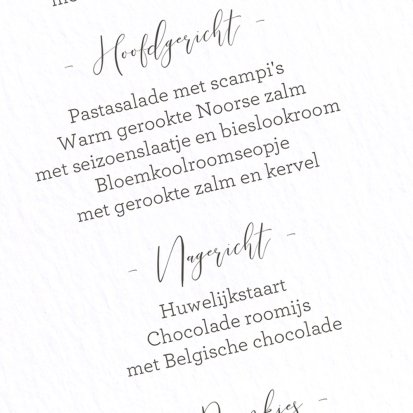 - Hoofdgericht -
Pastasalade met scampi's
Warm gerookte Noorse zalm
met seizoenslaatje en bieslookroom
Bloemkoolroomseopje
met gerookte zalm en kervel
- Nagericht -
Huwelijkstaart
Chocolade roomijs
met Belgische chocolade